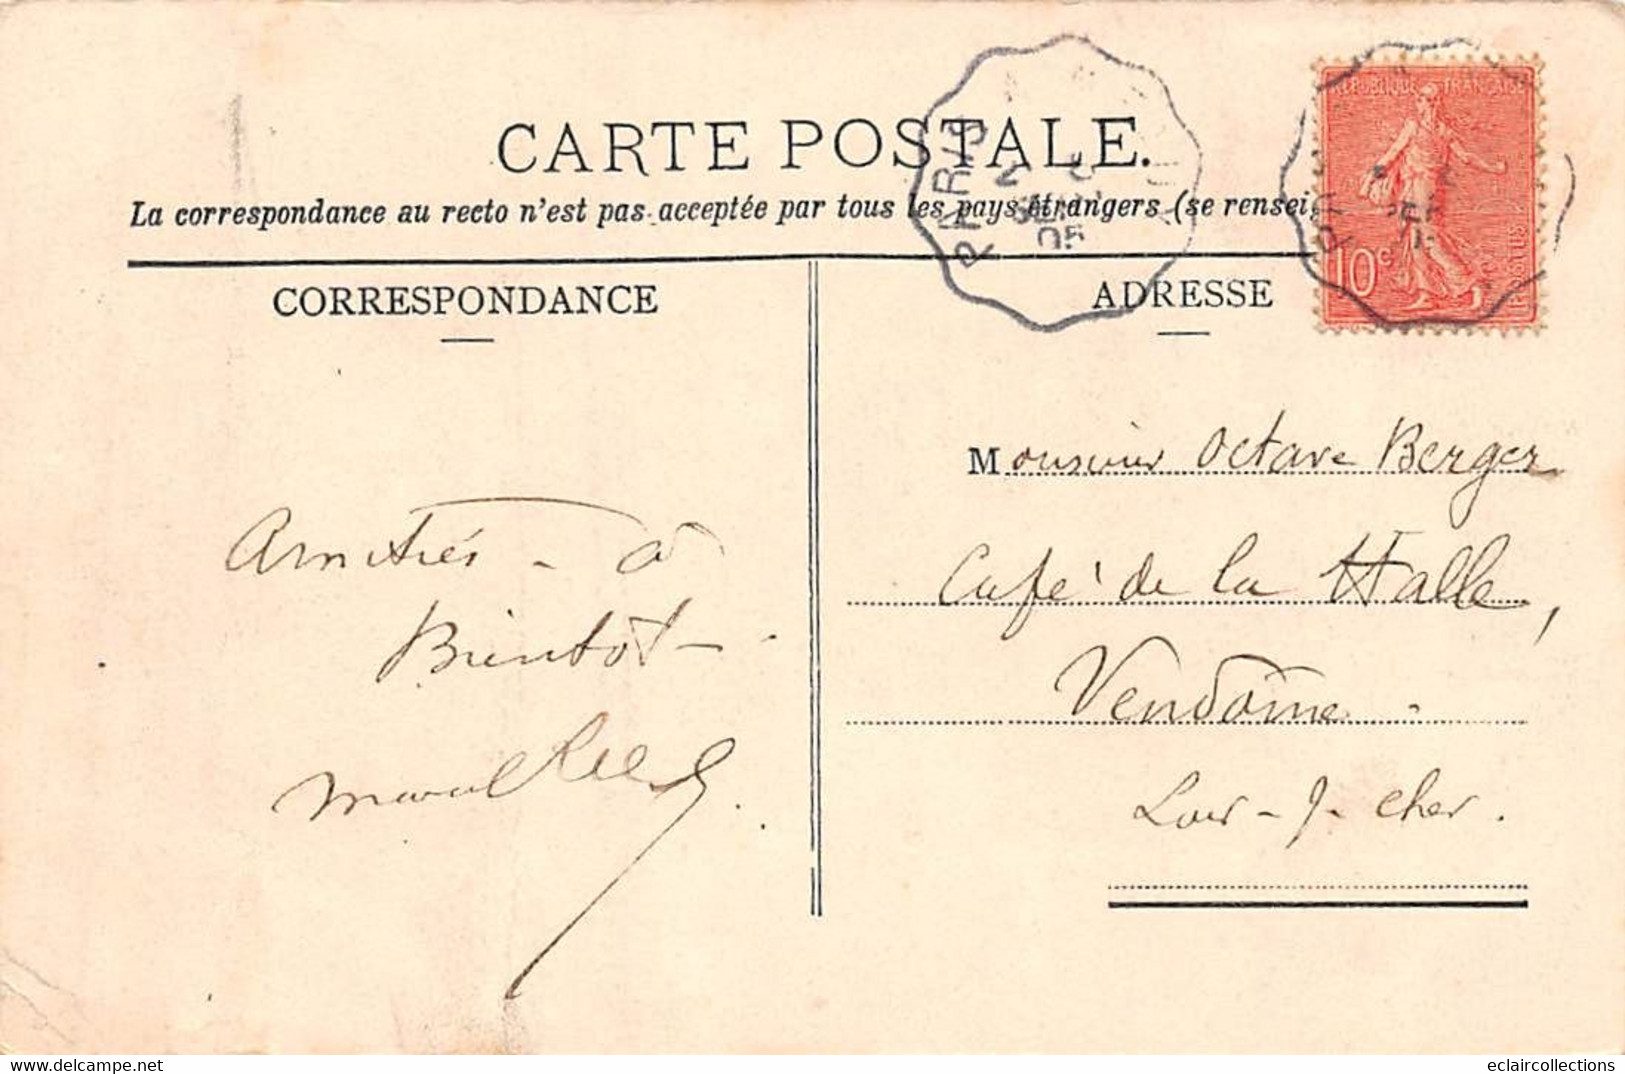 CARTE POSTALE.
La correspondance au recto n'est pas acceptée par tous les pays étrangers (se rensei
CORRESPONDANCE
ADRESSE
REPUBLIQUE FRANÇAISE
10c
POSTES
PARIS
05
Monsieur Octave Berger
Café de la Halle,
Vendôme.
Loir-&-Cher.
Amitiés - à
Bientot -
Marcel
www.delcampe.net
eclaircollections